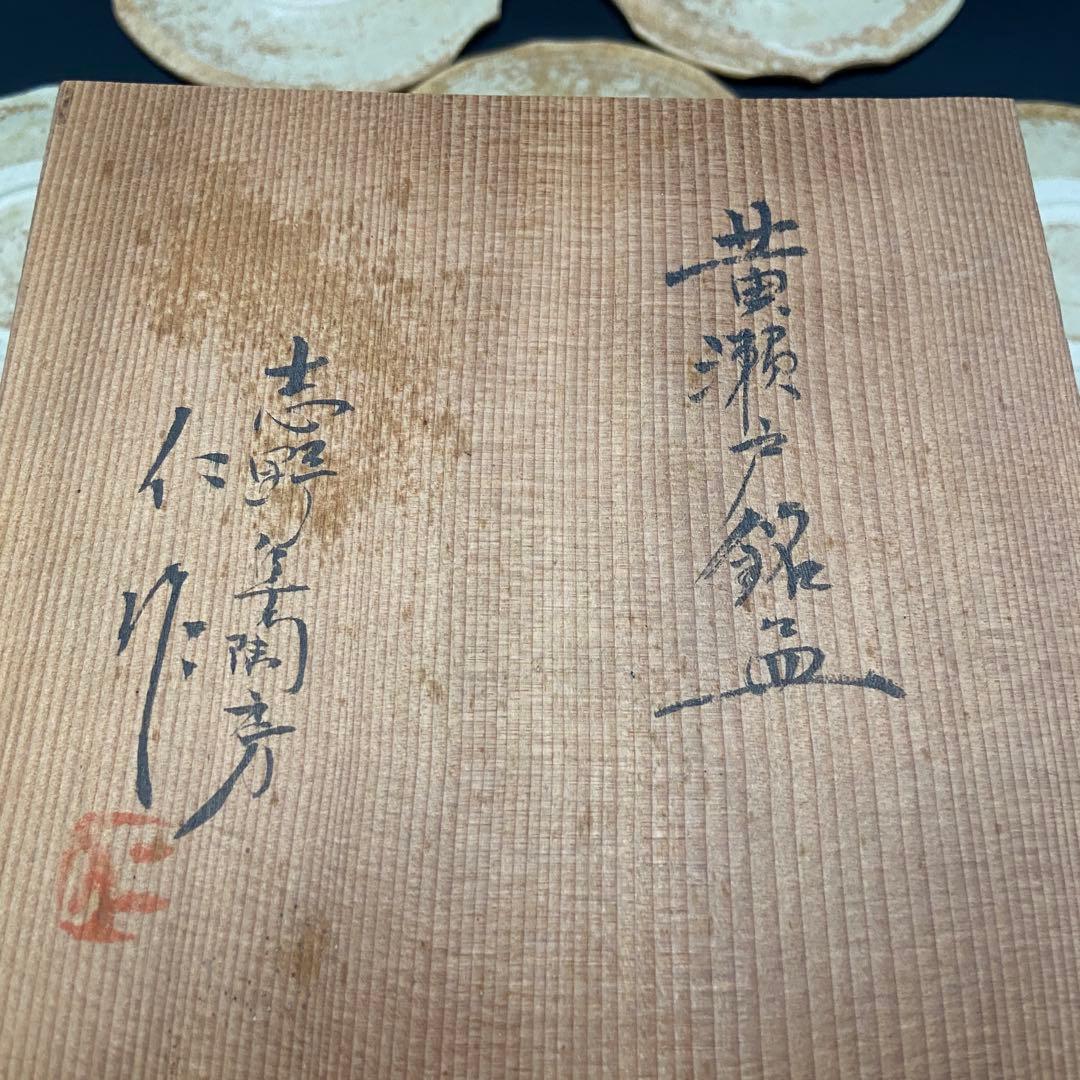 黄瀬戸銘皿
志野美陶房
仁作